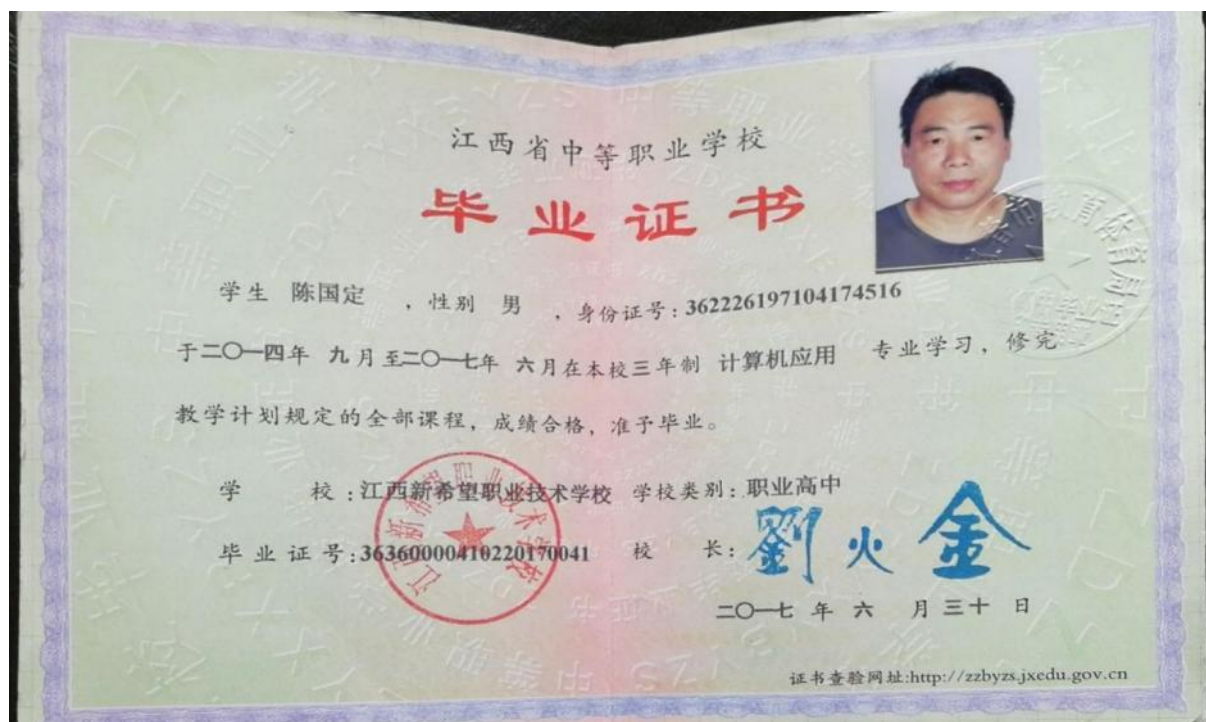 江西省中等职业学校
毕业证书
学生 陈国定 ，性别 男 ，身份证号：362226197104174516
于二〇一四年 九月至二〇一七年 六月在本校三年制 计算机应用 专业学习，修完
教学计划规定的全部课程，成绩合格，准予毕业。
学 校：江西新希望职业技术学校 学校类别：职业高中
毕业证号：36360000410220170041 校 长：劉火金
二〇一七 年 六 月 三十 日
江西新希望职业技术学校
教育体育局
证书查验网址:http://zzbyzs.jxedu.gov.cn